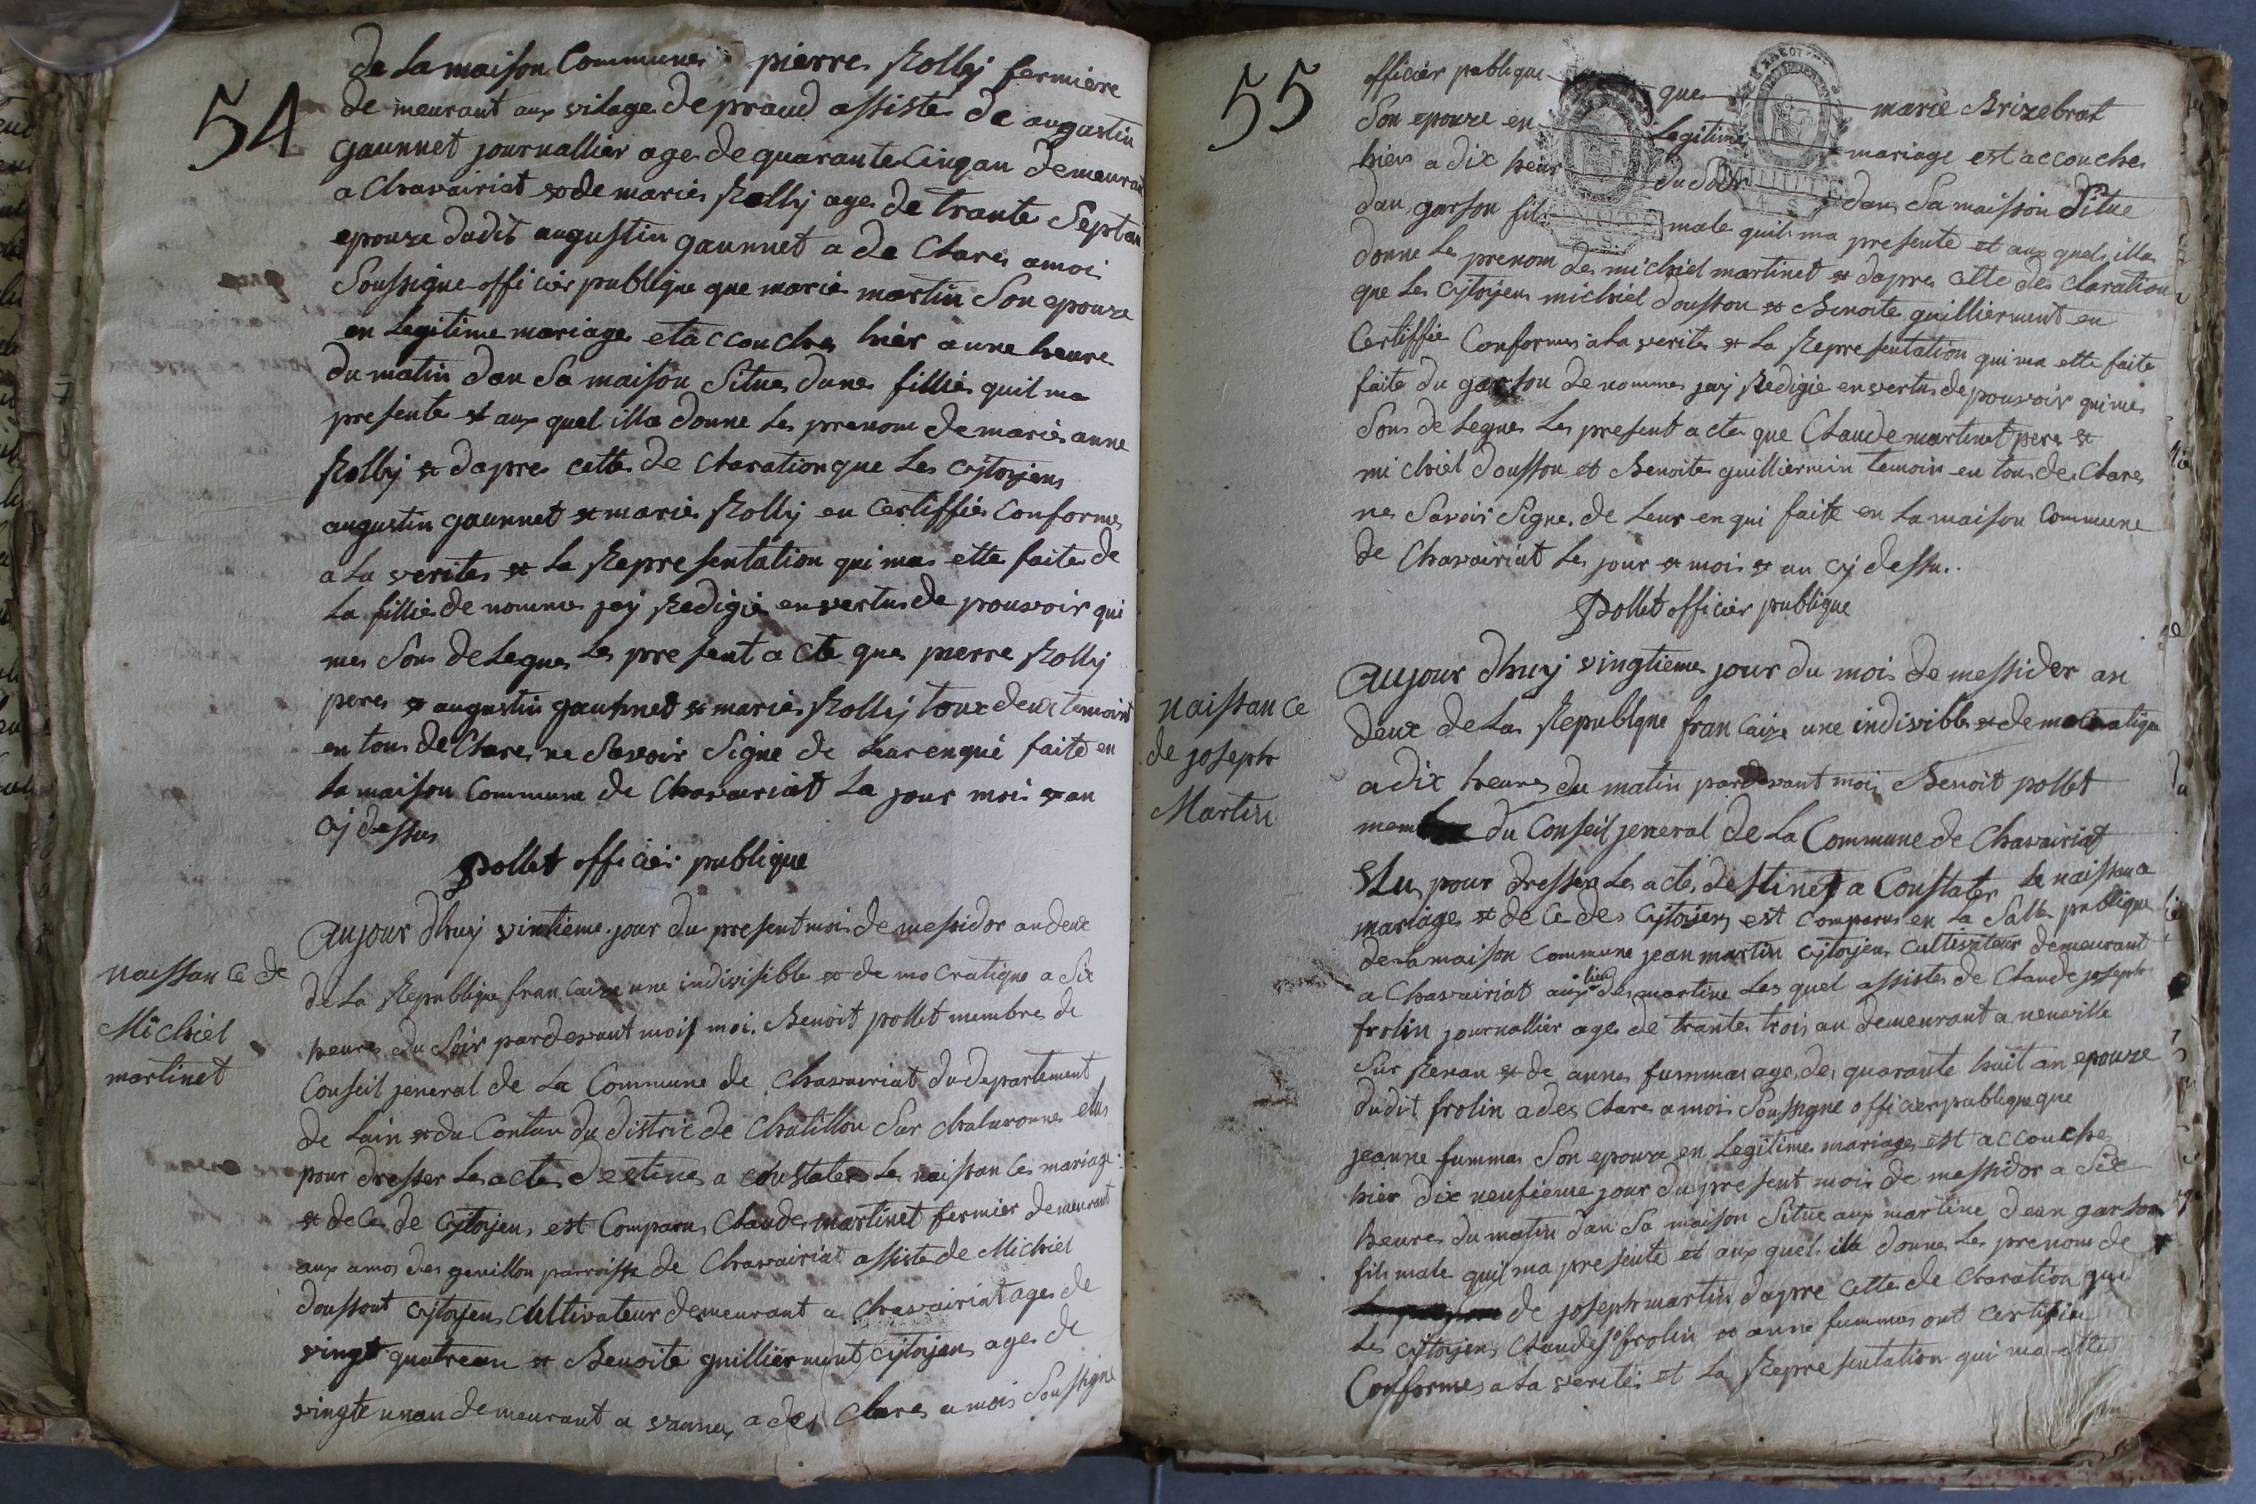 54
de La maison Commune pierre Rolly fermiere
de meurant aux vilage de praud assiste de augustin
gaunnet journallier age de quarante Cinqan demeurant
a Chavairiat et de marie Rolly age de trante Septan
epouze dudit augustin gaunnet a de Clare amoi
Soussigne officier publique que marie martin Son epouze
en Legitime mariage et accouche hier a une heure
du matin dan Sa maison Situe dune fillie quil ma
presente et aux quel illa donne Le prenom de marie anne
Rolly et dapres cette de Claration que Les Cytoyens
augustin gaunnet et marie Rolly en Certiffie Conforme
a La verite et La Representation qui ma ette faite de
La fillie de nomme jay Redigie en vertu de pouvoir qui
me Son delegue Le present a cte que pierre Rolly
pere et augustin gaunnet et marie Rolly toux deux temoint
en ton de Clare ne Savoir Signe de Leur enqui faite en
La maison Commune de Chavairiat La jour mois et an
Cy dessus
pollet officier publique
naissan Ce de
Michiel
martinet
aujour dhuy vintieme jour du present moi de messidor an deux
de La Republique francaize une indivisible et de mo cratique a Six
heure du Soir pardevant mois moi Benoit pollet membre de
Conseil jeneral de La Commune de Chavairiat du departement
de Lain et du Conton du district de Chatillon Sur chalaronne elus
pour dresser Les acte destine a constater Les naissan Ces mariage
et de Ces de Cytoyens est Comparu Claude martinet fermier demeurant
aux amos des genillon parroisse de Chavairiat assiste de Michiel
doussont Cytoyen Cultivateur demeurant a Chavairiat age de
vingt quatrean et Benoite guillierment Cytoyen age de
vingte unan demeurant a vanne a de Clare a mois Soussigne
55
officier publique que marie Brizebrat
Son epouze en Legitime mariage est accouche
hier a dix heur du Soir dan Sa maison Situe
dan garson fil male quil ma presente et aux quel illa
donne Le prenom de michiel martinet et dapres cette de Claration
que Les Cytoyens michiel dousson et Benoite guillierment en
Certiffie Conforme a La verite et La Representation qui ma ette faite
faite du garson de nomme jay Redigie en vertu de pouvoir qui me
Son delegue Le present acte que Claude martinet pere et
michiel dousson et Benoite guilliermin temoin en ton de Clare
ne Savoir Signe de Leur en qui faite en La maison Commune
de Chavairiat Le jour et moi et an Cy dessu
pollet officier publique
naissan Ce
de joseph
Martin
aujour dhuy vingtieme jour du mois de messidor an
deux de La Republque francaize une indivible et democratique
a dix heure du matin pardevant moi Benoit pollet
membre du Conseil jeneral de La Commune de Chavairiat
Elu pour dresser Les acte destinet a Constater Le naissance
mariage et de Ce des Cytoyens est Comparu en La Salle publique
de La maison Commune jean martin Cytoyen Cultivateur demeurant
a Chavairiat aux lieu des martine Les quel assiste de Claude joseph
frolin journallier age de trante trois an demeurant a neuville
Sur Renan et de anne fumma age de quarante huit an epouze
dudit frolin a de Clare a moi Soussigne officier publique que
jeanne fumma Son epouze en Legitime mariage est accouche
hier dix neufieme jour du present mois de messidor a Six
heure du matin dan Sa maison Situe aux martine dean garson
fils male quil ma presente et aux quel illa donne Le prenom de
de joseph martin dapre cette de Claration que
Les Cytoyens Claude jph frolin et anne fumma ont Certifie
Conforme a La verite et La Representation qui ma ette